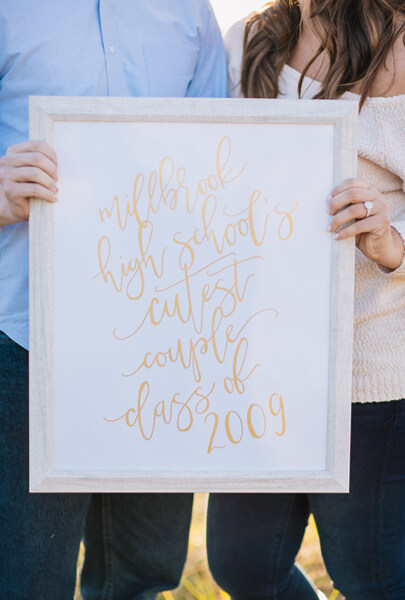 millbrook
high school's
cutest
couple
class of
2009